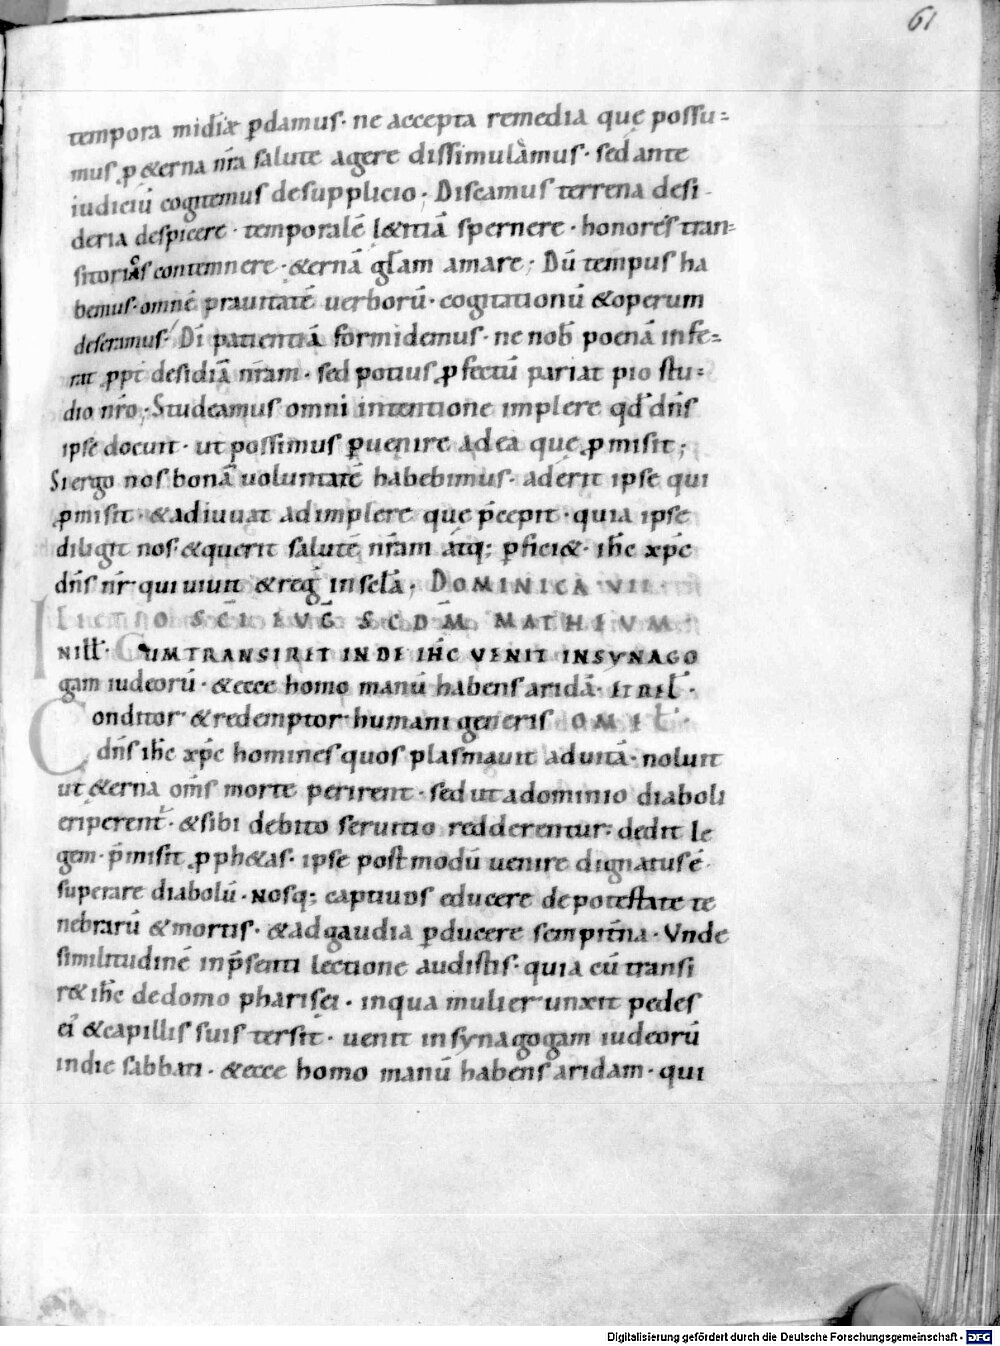 61
tempora miſdiæ p̱damuſ· ne accepta remedia quę poſſu-
muſ ꝓ &erna nr̄a ſalute agere diſſimulamuſ· ſed ante
iudiciū cogitemuſ de ſupplicio; Diſcamuſ terrena deſi
deria deſpicere· temporalē l&itiā ſpernere· honoreſ tran-
ſitorioſ contemnere· &ernā gl̄am amare; Dū tempuſ ha
bemuſ· omnē prauitatē uerborū· cogitationū & operum
deſeramuſ· Dī patientiā formidemuſ· ne nob̄ poenā infe-
rat ꝓpt̄ deſidiā nr̄am· ſed potiuſ ꝓfectū pariat pio ſtu-
dio nr̄o; Studeamuſ omni intentione implere qd̄ dn̄ſ
ipſe docuit· ut poſſimuſ p̱uenire ad ea quę ꝓmiſit;
Si ergo noſ bonā uoluntatē habebimuſ· aderit ipſe qui
ꝓmiſit· & adiuuat adimplere quę p̄cepit· quia ipſe
diligit noſ· & querit ſalutē nr̄am atq; p̱fici&· ih̄c xp̄c
dn̄ſ nr̄· qui uiuit & reḡ in ſc̄la· DOMINICA VII·
LECTIO SC̄I EVḠ SCDM̄ MATHEVM·
IN ILL̄· CUM TRANSIRET INDE IH̄C VENIT IN SYNAGO
gam iudeorū· & ecce homo manū habenſ aridā· & rel̄·
Conditor & redemptor humani generiſ OMEL̄·
dn̄ſ ih̄c xp̄c homineſ quoſ plaſmauit ad uitā· noluit
ut &erna om̄ſ morte perirent· ſed ut a dominio diaboli
eriperent̄· & ſibi debito ſeruitio redderentur· dedit le
gem· p̄miſit ꝓph&aſ· ipſe poſtmodū uenire dignatuſ ē·
ſuperare diabolū· noſq; captiuoſ educere de poteſtate te
nebrarū & mortiſ· & ad gaudia p̱ducere ſempit̄na· Vnde
ſimilitudinē in p̄ſenti lectione audiſtiſ· quia cū tranſi
r& ih̄c de domo phariſei· in qua mulier unxit pedeſ
ei· & capilliſ ſuiſ terſit· uenit in ſynagogam iudeorū
in die ſabbati· & ecce homo manū habenſ aridam· qui
Digitalisierung gefördert durch die Deutsche Forschungsgemeinschaft - DFG